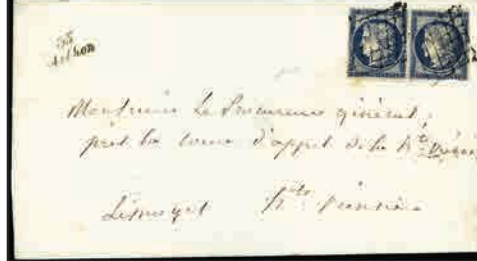 Monsieur Le Procureur général,
près la cour d'appel de la Hte
Limoges Hte Vienne